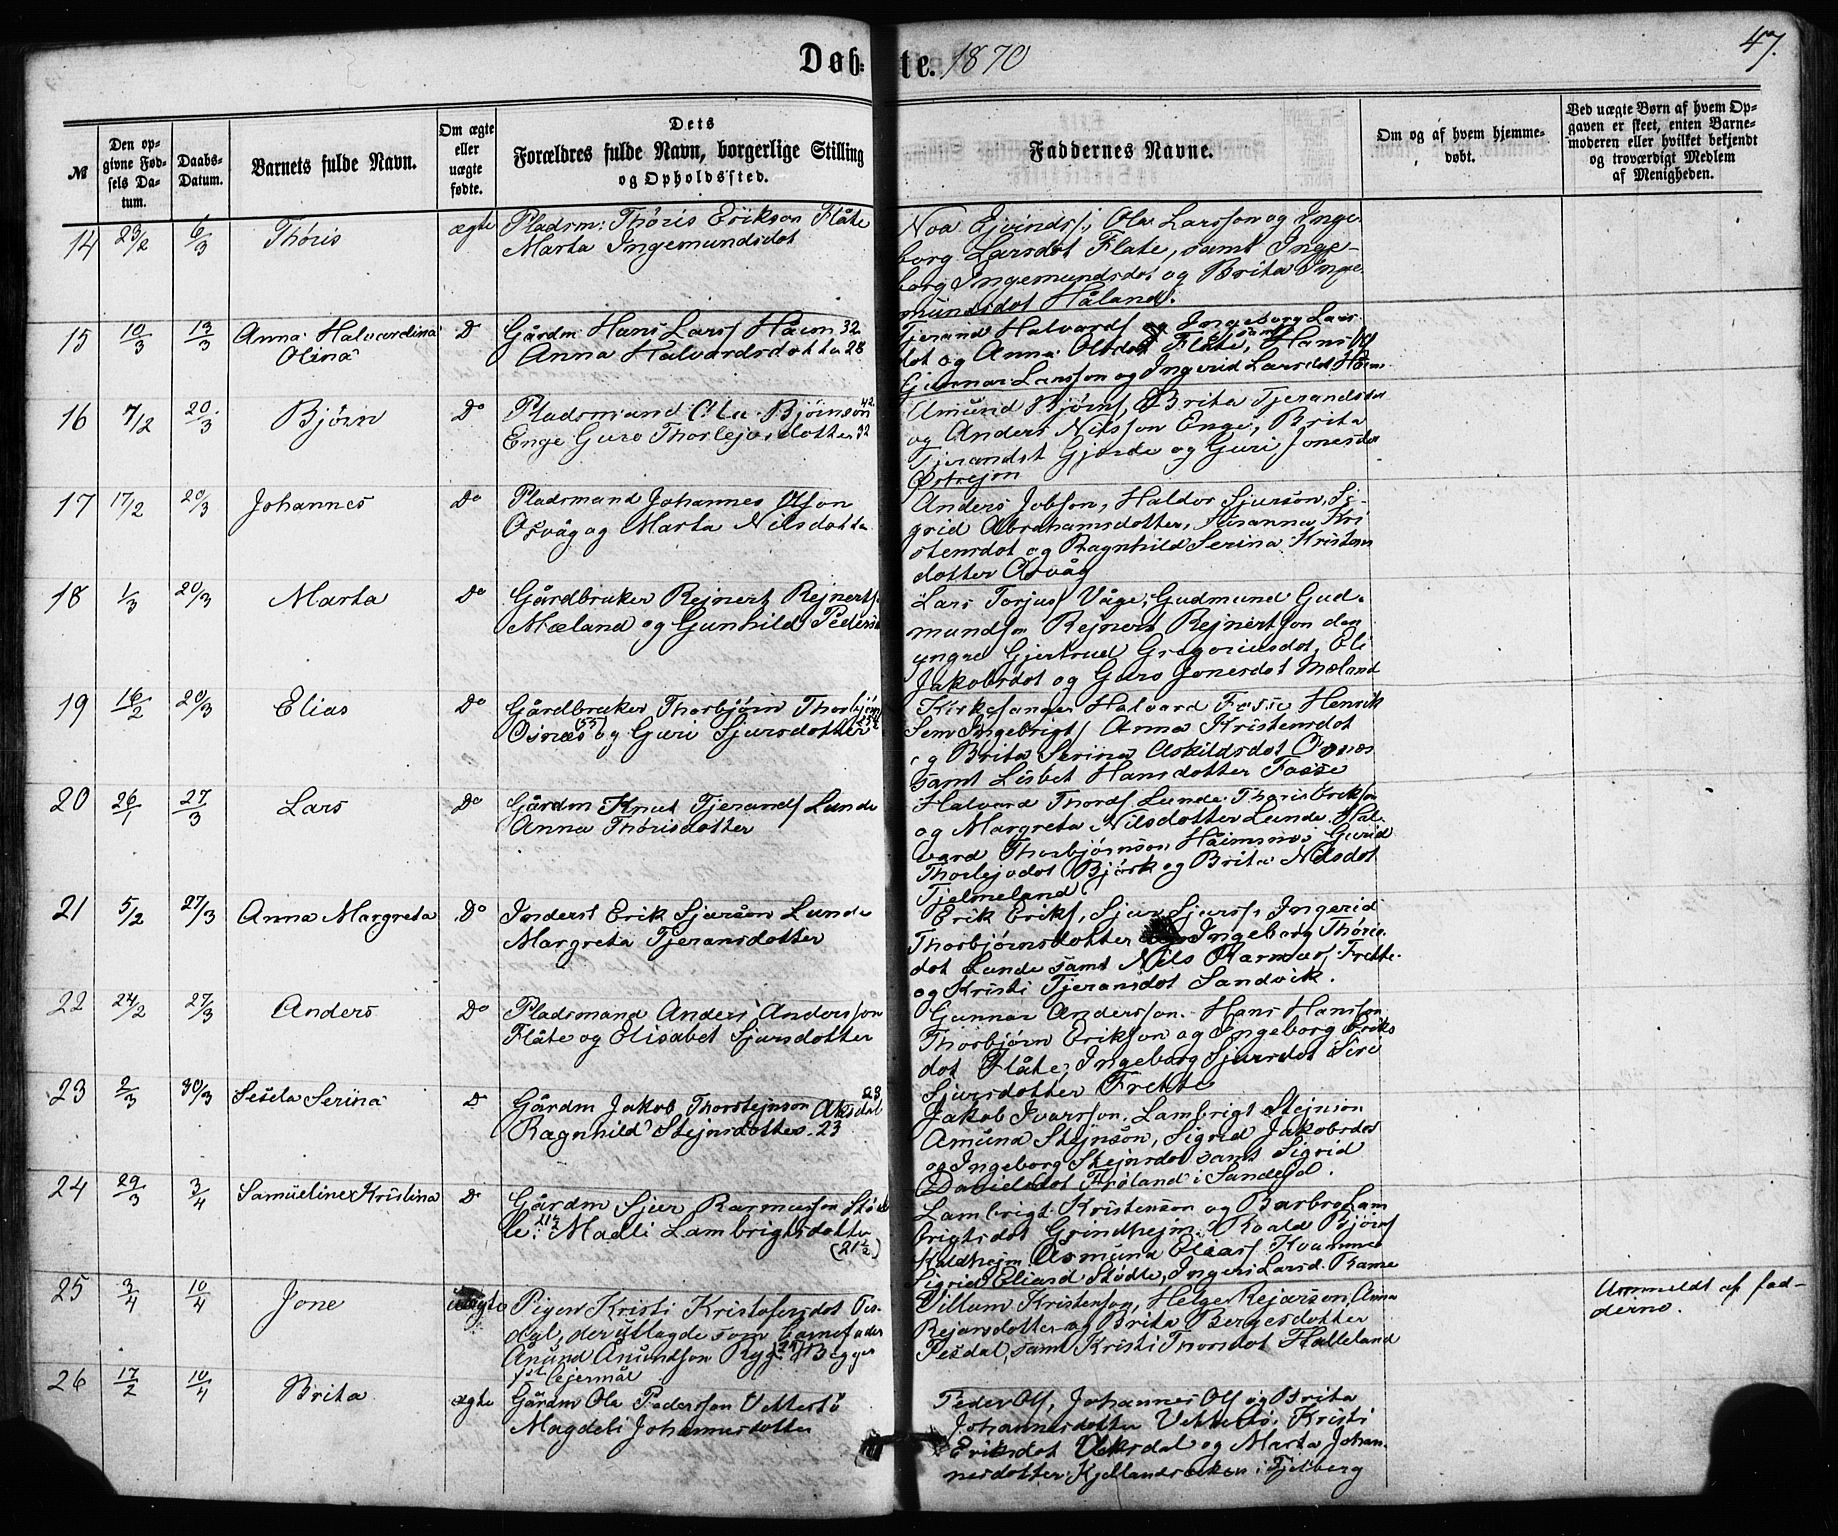 Døbte. 1870
47.
№
Den opgivne Fødsels Datum.
Daabs-Datum.
Barnets fulde Navn.
Om ægte eller uægte fødte.
Dets Forældres fulde Navn, borgerlige Stilling og Opholdssted.
Faddernes Navne.
Om og af hvem hjemmedøbt.
Ved uægte Børn af hvem Opgaven er skeet, enten Barnemoderen eller hvilket bekjendt og troværdigt Medlem af Menigheden.
14 23/2 6/3 Thøris ægte
Pladsm. Thøris Erikson Flåte
Marta Ingemundsdot
Noa Ejvindss, Ola Larsson og Inge-
borg Larsdot Flåte, samt Inge-
borg Ingemundsdot og Brita Inge-
mundsdot Håland.
15 10/3 13/3 Anna Halvardina
Olina
D
Gårdm Hans Larss Håem 32
Anna Halvardsdotter 28
Tjerand Halvards og Ingeborg Lars-
dot og Anna Olsdot Flåte, samt Hans
Gunnar Larsson og Ingerid Larsdot Håem
16 7/2 20/3 Bjørn Do
Pladsmand Ola Bjørnson 42
Enge Guro Thorlejvsdotter 32
Amund Bjørns, Brita Tjerandsdot
og Anders Nilsson Enge, Brita
Tjerandst Gjerde og Guri Jonesdot
Østrejm
17 17/2 20/3 Johannes Do
Pladsmand Johannes Olson
Osvåg og Marta Nilsdotte
Anders Jobson, Haldor Sjurson, Si-
grid Abrahamsdotter, Susanna Kri-
stensdot og Ragnhild Serina Kristens
dotter Osvåg
18 1/3 20/3 Marta Do
Gårdbruker Rejnert Rejnerts
Mæland og Gunhild Peders
Lars Torjus Våge, Gudmund Gud-
munds Rejnert Rejnertson den
yngre Gjertrud Gregoriusdot, Eli
Jakobsdot og Guro Jonesdot Mæland
19 16/2 20/3 Elias Do
Gårdbruker Thorbjørn Thorbjørns
Osnæs (55) og Guri Sjursdotter
Kirkesanger Halvard Fosse Henrik
Sem Ingebrigt Anna Kristensdot
og Brita Serina Askildsdot Osnæs
samt Lisbet Hansdotter Fosse
20 26/1 27/3 Lars Do
Gårdm Knut Tjerands Lunde
Anna Thørisdotter
Halvard Thords Lunde Thøris Erikson
og Margreta Nilsdotter Lunde, Hal-
vard Thorbjørnson Håimsnes Gurid
Thorlejvdot Bjørk og Brita Nilsdot
Tjelmeland
21 5/2 27/3 Anna Margreta Do
Inderst Erik Sjurson Lunde
Margreta Tjeransdotter
Erik Eriks, Sjur Sjurss, Ingerid
Thorbjørnsdotter Ingeborg Thøris-
dot Lunde samt Nils Rasmus Frette
og Kristi Tjeransdot Sandvik.
22 24/2 27/3 Anders Do
Pladsmand Anders Andersson
Flåte og Elisabet Sjursdotter
Gunnar Andersson. Hans Hanson,
Thorbjørn Erikson og Ingeborg Eriks
dot Flåte, Ingeborg Sjursdot Siri
Sjursdotter Frette
23 2/3 30/3 Sesela Serina D
Gårdm Jakob Thorstejnson Aksdal 28
Ragnhild Stejnsdotter 23
Jakob Ivarsson, Lambrigt Stejnson
Amund Stejnson, Sigrid Jakobsdot
og Ingeborg Stejnsdot samt Sigrid
Danielsdot Frøland i Sandejd.
24 29/3 3/4 Samueline Kristina D
Gårdm Sjur Rasmusson Stød
le. Madli Lambrigtsdotter
(21 1/2)
Lambrigt Kristenson og Barbro Lam
brigtsdot Grindhejm. Roald Bjørns
Kaldhejm. Asmund Elias Kvamme
Sigrid Eliasd Stødle, Inger Larsd. Ramme
25 3/4 10/4 Jone uægte
Pigen Kristi Kristofersdot Tes-
dal, der utlagde som barnefader
Anund Anundson Rygg Begges
1st lejermål
Villum Kristenson, Helge Rejarson Anna
Rejarsdotter og Brita Bergesdotter
Tesdal, samt Kristi Thorsdot Halleland
Anmeldt af fad-
derne.
26 17/2 10/4 Brita ægte
Gårdm Ola Pederson Vettestø
Magdeli Johannesdotter
Peder Ols, Johannes Ols og Brita
Johannesdotter Vettestø, Kristi
Eriksdot Veksdal og Marta Johan-
nesdotter Kjellandsviken i Fjelberg